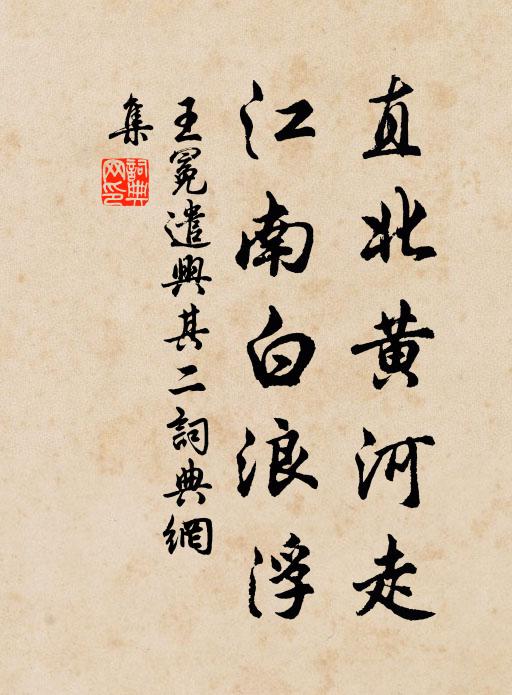 直北黄河走
江南白浪浮
王冕遣興其二詞典網
集
詞典
网印